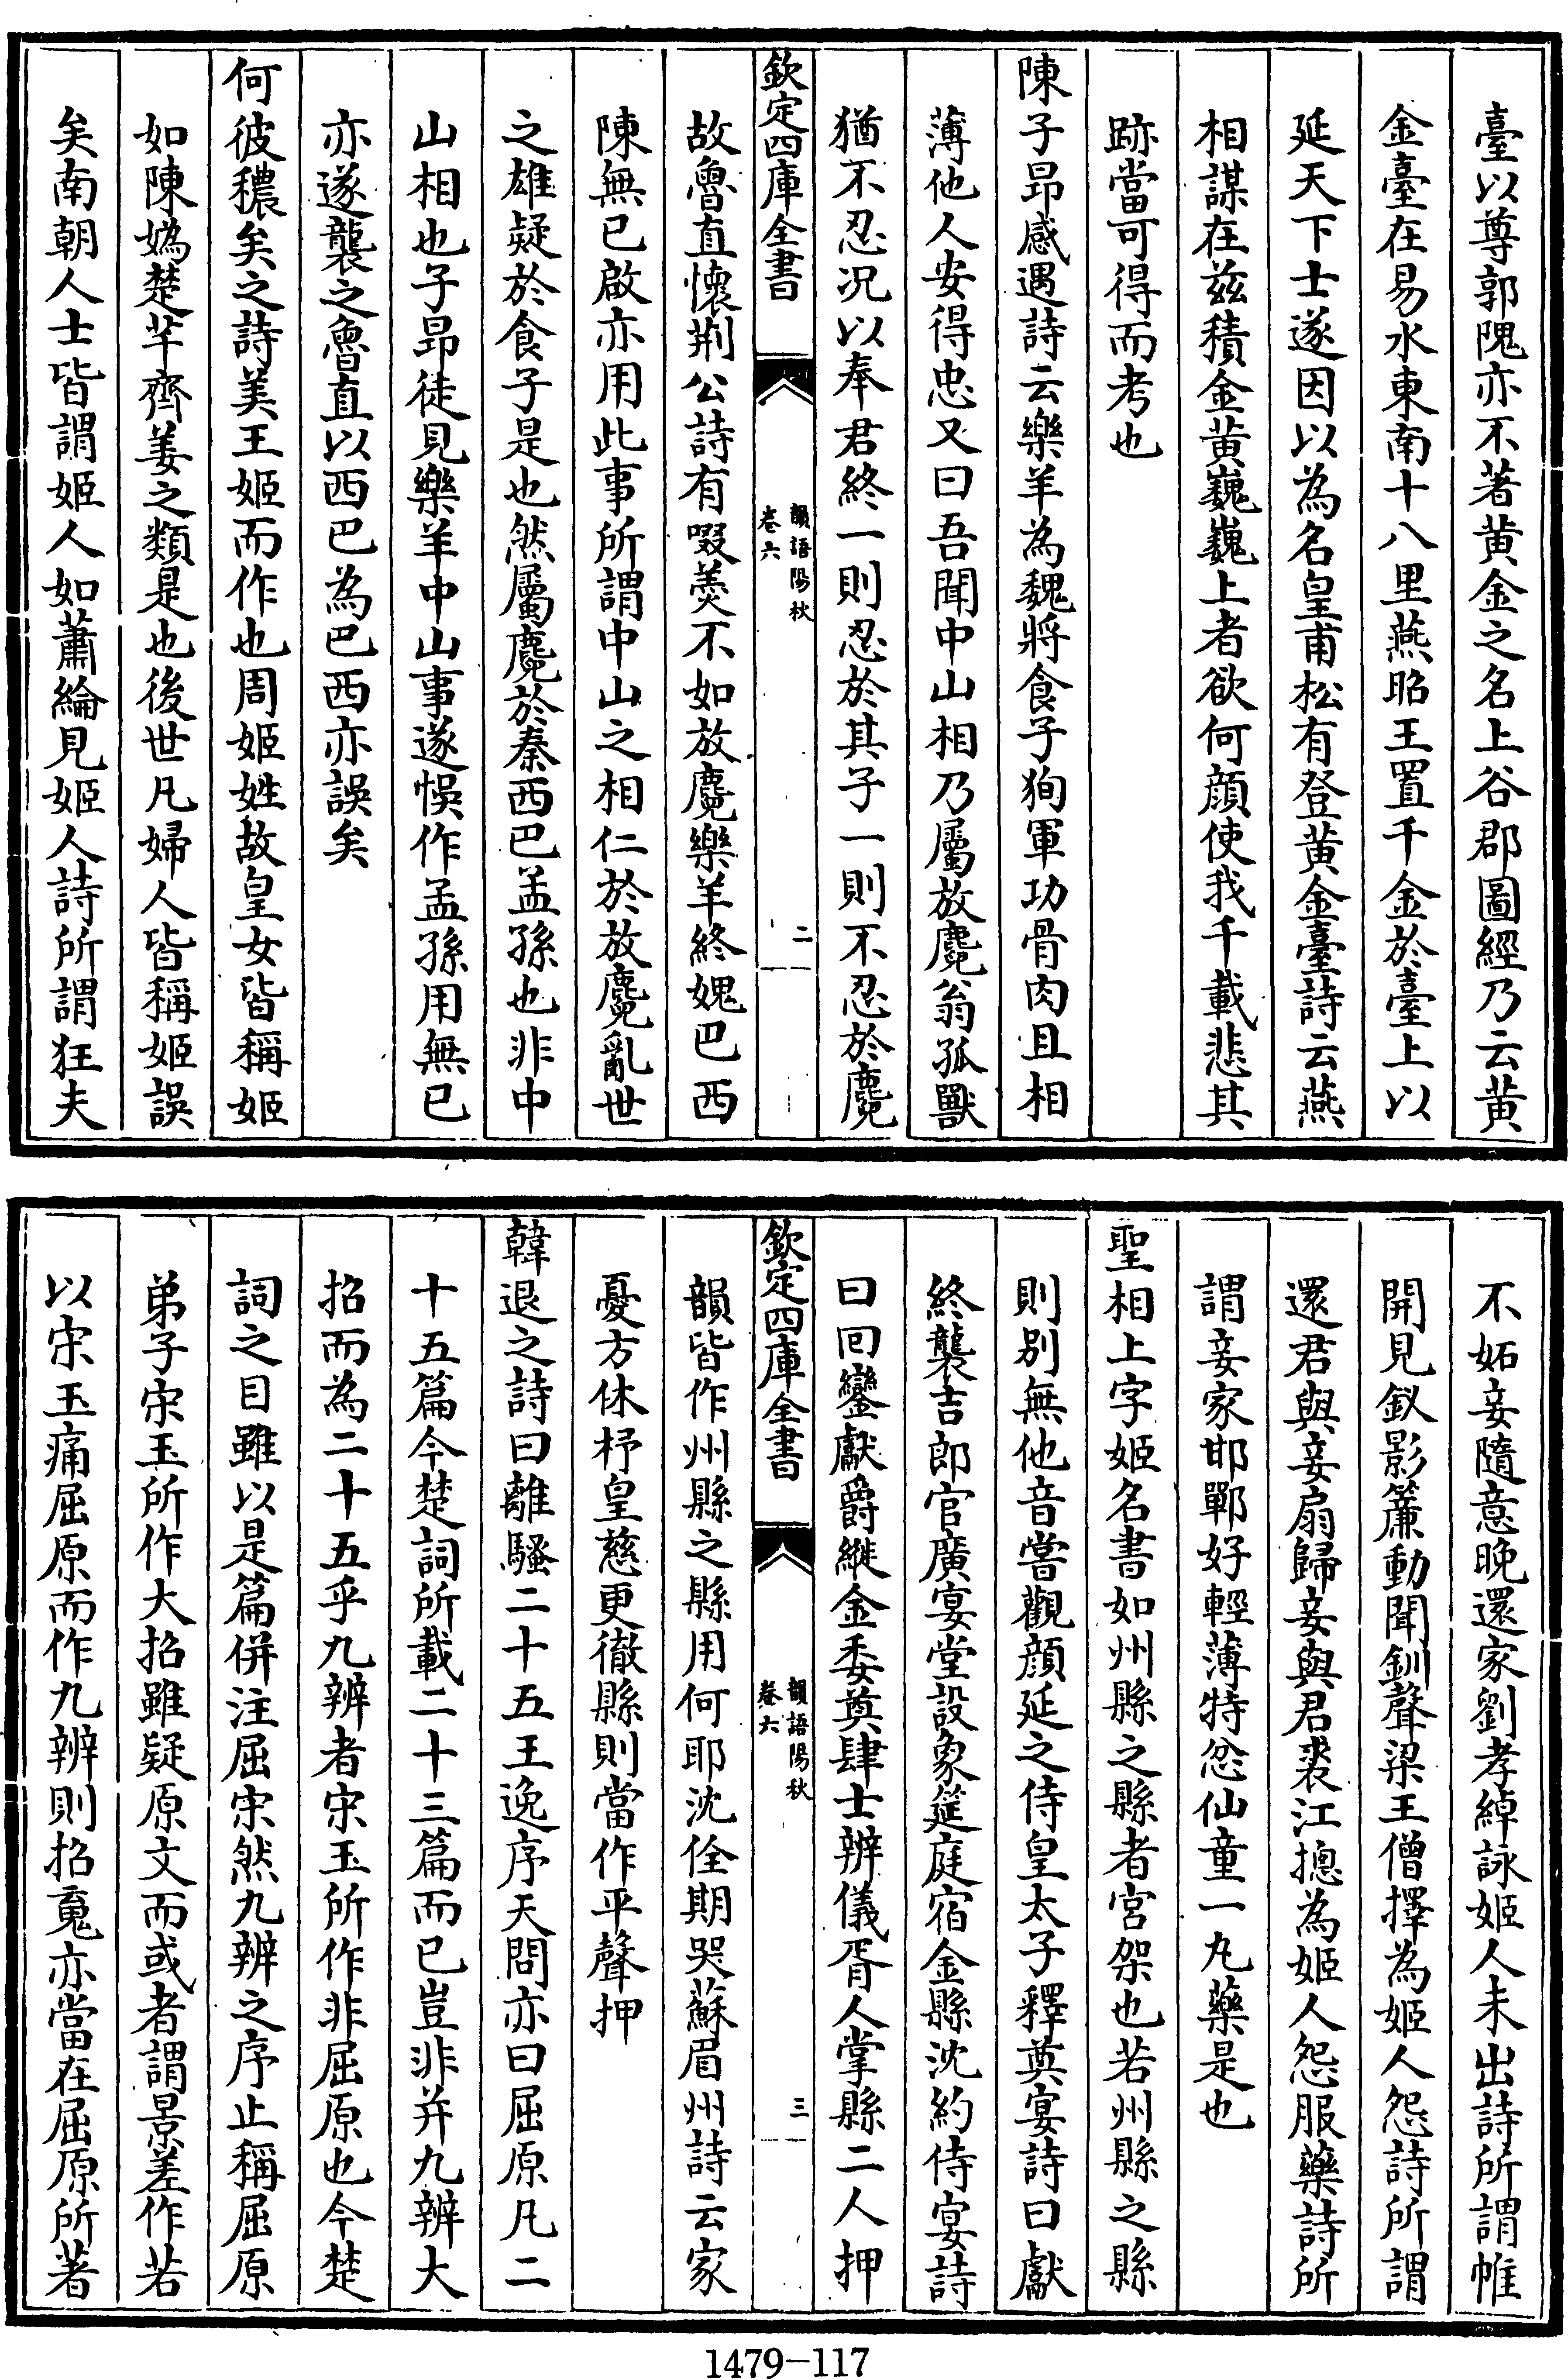 臺以尊郭隗亦不著黄金之名上谷郡圖經乃云黄
金臺在易水東南十八里燕昭王置千金於臺上以
延天下士遂因以為名皇甫松有登黄金臺詩云燕
相謀在兹積金黄巍巍上者欲何顔使我千載悲其
跡當可得而考也
陳子昻感遇詩云樂羊為魏將食子狥軍功骨肉且相
薄他人安得忠又曰吾聞中山相乃屬放麑翁孤獸
猶不忍况以奉君終一則忍於其子一則不忍於麑
欽定四庫全書
韻語陽秋
卷六
二
故魯直懷荆公詩有啜羮不如放麑樂羊終媿巴西
陳無已啟亦用此事所謂中山之相仁於放麑亂世
之雄疑於食子是也然屬麑於秦西巴孟孫也非中
山相也子昻徒見樂羊中山事遂悞作孟孫用無已
亦遂襲之魯直以西巴為巴西亦誤矣
何彼穠矣之詩美王姬而作也周姬姓故皇女皆稱姬
如陳嬀楚羋齊姜之類是也後世凡婦人皆稱姬誤
矣南朝人士皆謂姬人如蕭綸見姬人詩所謂狂夫
不妬妾隨意晩還家劉孝綽詠姬人未出詩所謂帷
開見釵影簾動聞釧聲梁王僧擇為姬人怨詩所謂
還君與妾扇歸妾與君裘江摠為姬人怨服藥詩所
謂妾家邯鄲好輕薄特忿仙童一丸藥是也
聖相上字姬名書如州縣之縣者宮架也若州縣之縣
則别無他音嘗觀顔延之侍皇太子釋奠宴詩曰獻
終襲吉郎官廣宴堂設象筵庭宿金縣沈約侍宴詩
曰回鑾獻爵縱金委奠肆士辨儀胥人掌縣二人押
欽定四庫全書
韻語陽秋
卷六
三
韻皆作州縣之縣用何耶沈佺期哭蘇眉州詩云家
憂方休杼皇慈更徹縣則當作平聲押
韓退之詩曰離騷二十五王逸序天問亦曰屈原凡二
十五篇今楚詞所載二十三篇而已豈非并九辨大
招而為二十五乎九辨者宋玉所作非屈原也今楚
詞之目雖以是篇併注屈宋然九辨之序止稱屈原
弟子宋玉所作大招雖疑原文而或者謂景差作若
以宋玉痛屈原而作九辨則招䰟亦當在屈原所著
1479-117